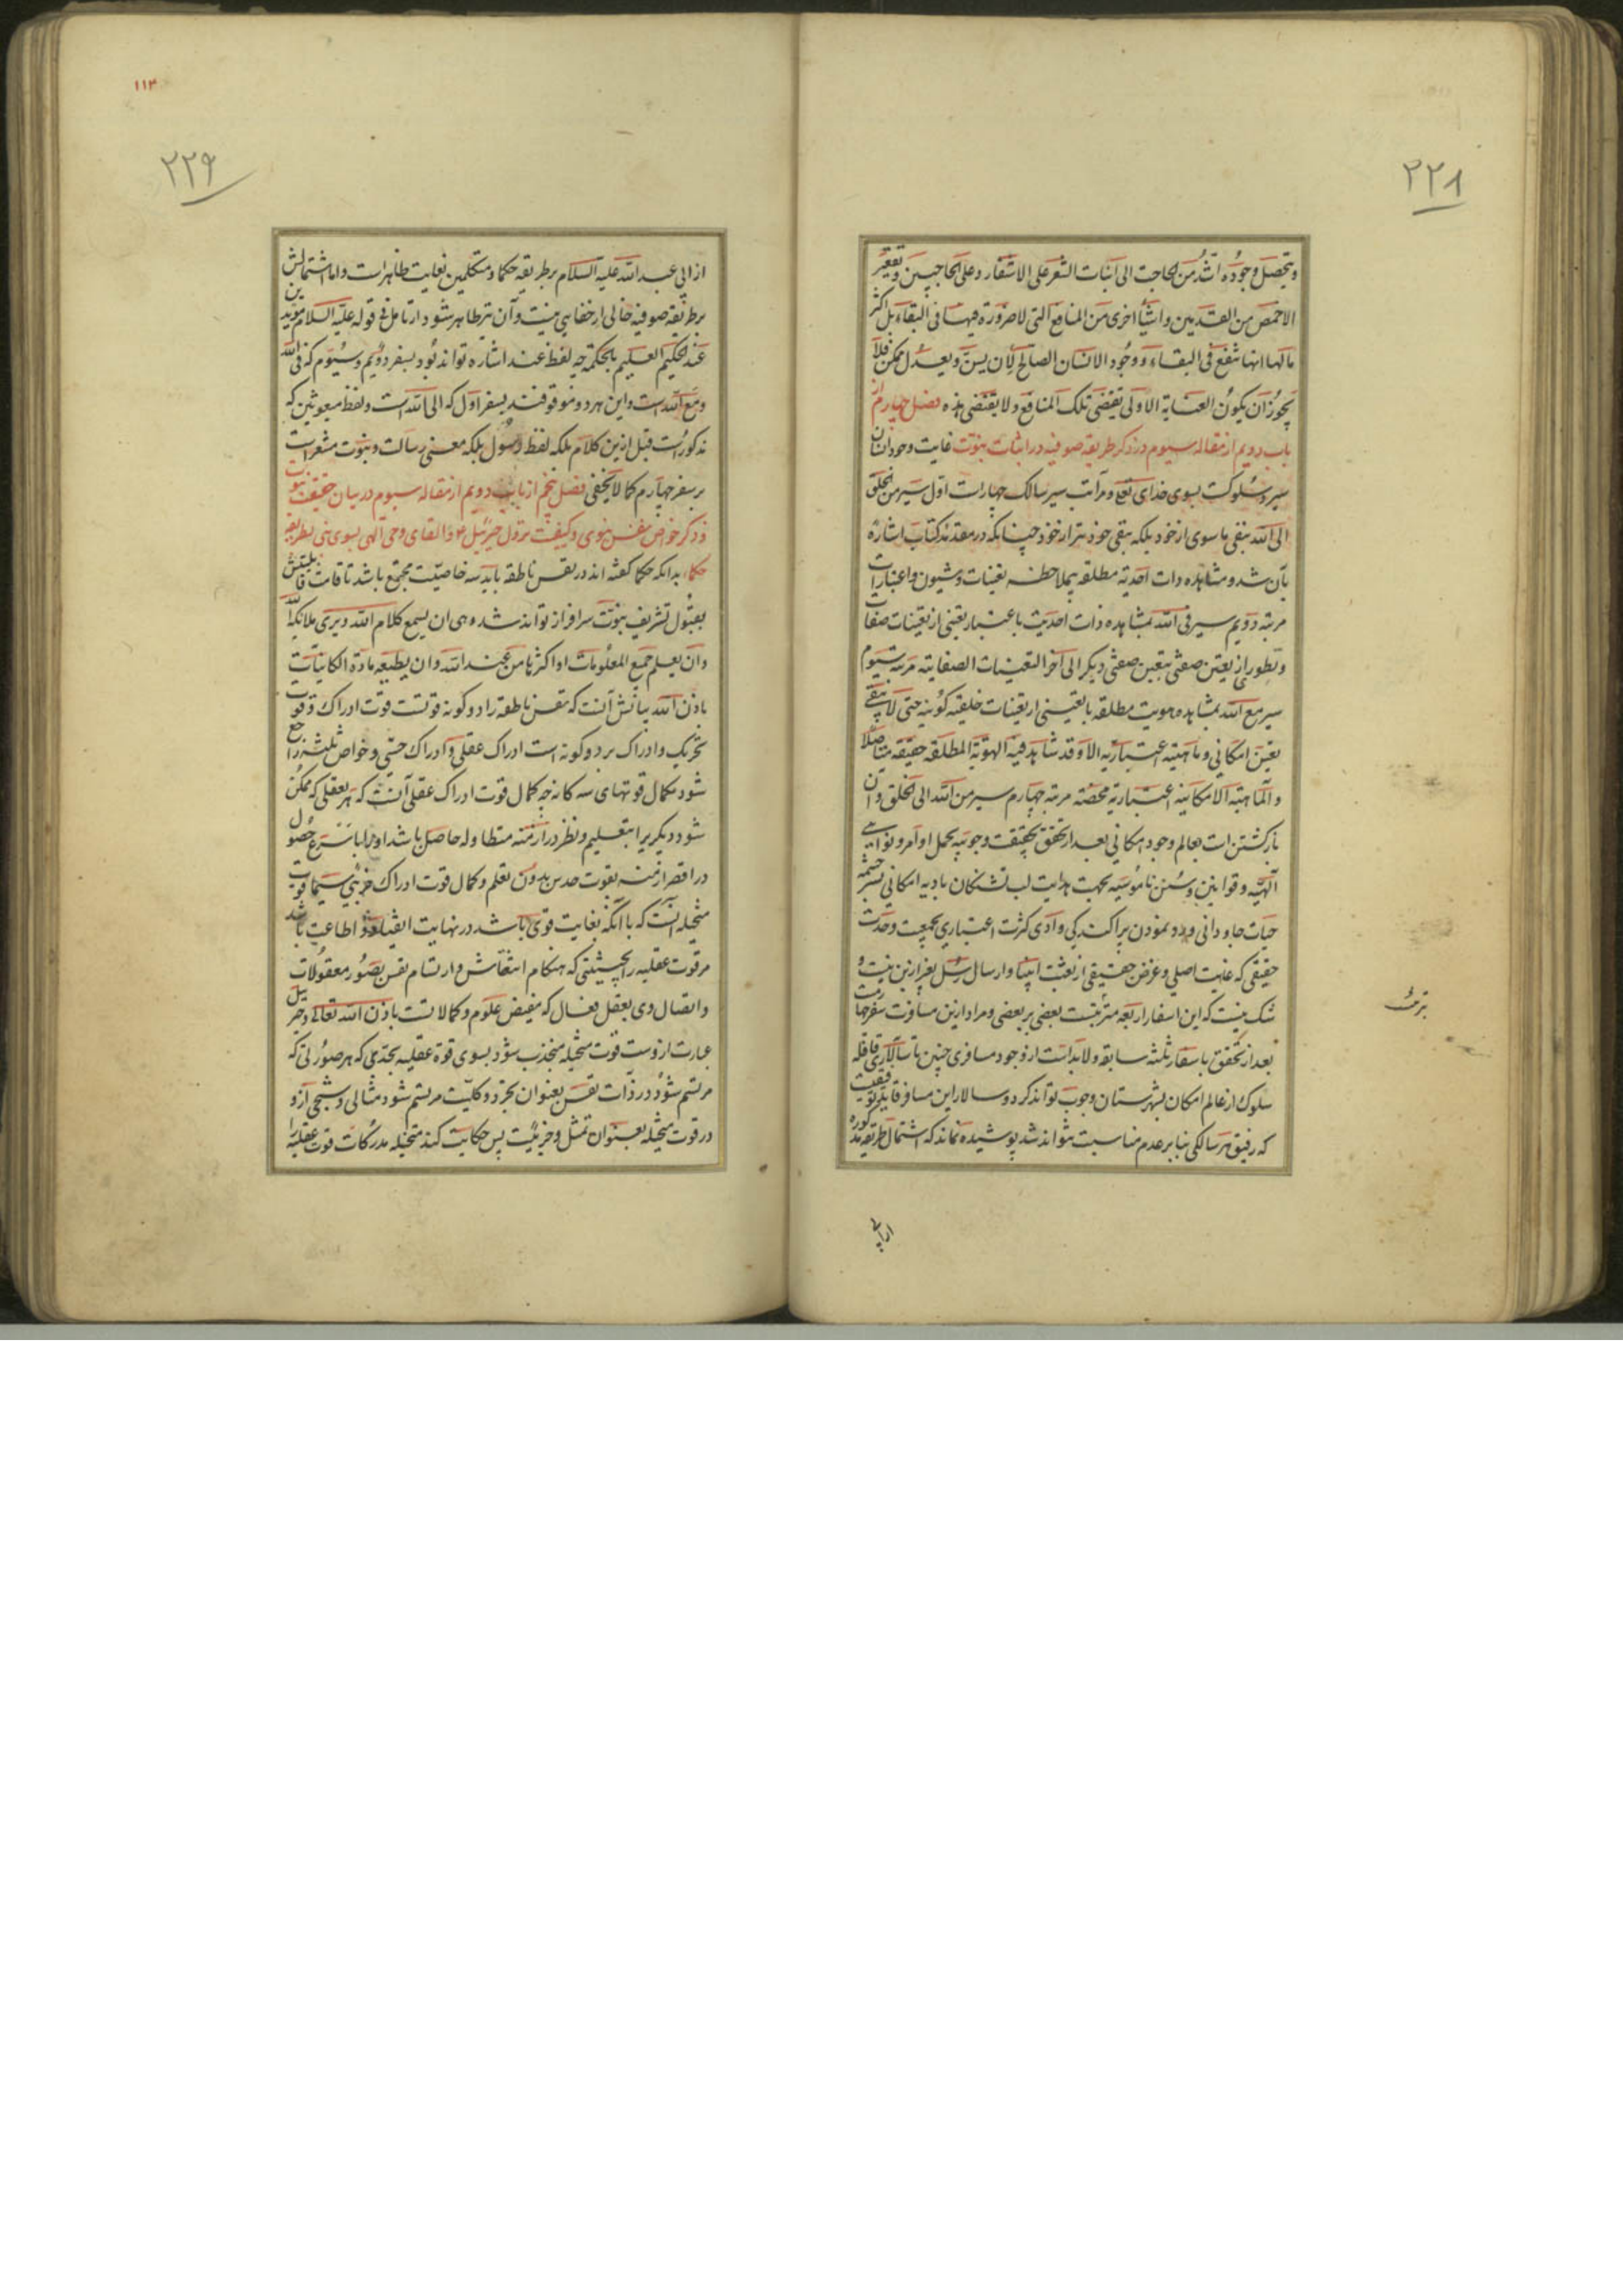 ۲۲۸
و یتحصل وجوده اشد من الحاجت الی انبات الشعر علی الاشفار و علی الحاجبین و تقعیر
الاخمص من القدمین و اشیاء اخری من المنافع التی لا ضرورة فیها فی البقاء بل اکثر
مالها انها تنفع فی البقاء و وجود الانسان الصالح لان یسن و یعدل ممکن فلا
یجوز ان یکون العنایة الاولی تقتضی تلک المنافع و لا یقتضی هذه فصل چهارم از
باب دویم از مقاله سیوم در ذکر طریقه صوفیه در اثبات نبوت غایت وجود انسان
سیر و سلوکست بسوی خدای تعالی و مراتب سیر سالک چهارست اول سیر من الخلق
الی الله بنفی ماسوی از خود بلکه بنفی خود نیز از خود چنانکه در مقدمه کتاب اشاره
بآن شد و مشاهده ذات احدیه مطلقه بی ملاحظه تعینات و شیون و اعتبارات
مرتبه دویم سیر فی الله بمشاهده ذات احدیت باعتبار تعینی از تعینات صفات
و تطور از تعین صفتی بتعین صفتی دیگر الی آخر التعینات الصفاتیه مرتبه سیوم
سیر مع الله بمشاهده هویت مطلقه با تعینی از تعینات خلقیه کونیه حتی لا یبقی
تعین امکانی و ماهیته اعتباریه الا و قد شاهد فیه الهویة المطلقه حقیقه متاصله
و الماهیة الامکانیه اعتباریه محضه مرتبه چهارم سیر من الله الی الخلق و آن
بازگشتن است بعالم وجود امکانی بعد از تحقق بحقیقت وجوبیه بحمل اوامر و نواهی
الهیه و قوانین و سنن ناموسیه بجهت هدایت لب تشنگان بادیه امکانی بسرچشمه
حیات جاودانی و رد نمودن پراکندگی وادی کثرت اعتباری بجمعیت وحدت
حقیقی که غایت اصلی و غرض حقیقی از بعثت انبیا و ارسال رسل بغیر ازین نیست و
شک نیست که این اسفار اربعه مترتبست بعضی بر بعضی و مراد ازین مسافرت سفر چهارمست
بعد از تحقق باسفار ثلثه سابقه و لابداست از وجود مسافری چنین تا سالاری قافله
سلوک از عالم امکان بشهرستان وجوب تواند کرد و سالار این مسافر قاید توفیقست
که رفیق هر سالکی بنا بر عدم مناسبت نتواند شد پوشیده نماند که اشتمال طریقه مذکوره
از ابی
۱۱۳
۲۲۹
از ابی عبد الله علیه السلام بر طریقه حکما و متکلمین بغایت ظاهرست و اما اشتمالش
بر طریقه صوفیه خالی از خفایی نیست و آن نیز ظاهر شود از تامل در قوله علیه السلام مویدین
عند الحکیم العلیم بالحکمة چه لفظ عند اشاره تواند بود بسفر دویم و سیوم که فی الله
و مع الله است و این هر دو موقوفند بسفر اول که الی الله است و لفظ مبعوثین که
مذکورست قبل ازین کلام بلکه لفظ رسول بلکه معنی رسالت و نبوت مشعرست
بر سفر چهارم کما لا یخفی فصل پنجم از باب دویم از مقاله سیوم در بیان حقیقت نبوت
و ذکر خواص نفس نبوی و کیفیت نزول جبرئیل و القای وحی الهی بسوی نبی بطریقه
حکما بدانکه حکما گفته اند در نفس ناطقه باید سه خاصیت مجتمع باشد تا قامت قابلیتش
بقبول تشریف نبوت سرافراز تواند شد و هی ان یسمع کلام الله و یری ملائکة الله
و ان یعلم جمیع المعلومات او اکثرها من عند الله و ان یطیعه مادة الکاینات
باذن الله بیانش آنست که نفس ناطقه را دو گونه قوتست قوت ادراک و قوت
تحریک و ادراک بر دو گونه است ادراک عقلی و ادراک حسی و خواص ثلثه راجع
شود بکمال قوتهای سه گانه چه کمال قوت ادراک عقلی آنست که هر تعقلی که ممکن
شود دیگریرا بتعلیم و نظر در ازمنه متطاوله حاصل باشد او را باسرع حصول
در اقصر ازمنه بقوت حدس بدون تعلم و کمال قوت ادراک جزئی سیما قوت
متخیله آنست که با آنکه بغایت قوی باشد در نهایت انقیاد و اطاعت باشد
مر قوت عقلیه را بحیثیتی که هنگام انتقاش و ارتسام نفس بصور معقولات
و اتصال وی بعقل فعال که مفیض علوم و کمالاتست باذن الله تعالی و جبرئیل
عبارت ازوست قوت متخیله منجذب شود بسوی قوة عقلیه بحدی که هر صورتی که
مرتسم شود در ذات نفس بعنوان تجرد و کلیت مرتسم شود مثالی و شبحی ازو
در قوت متخیله بعنوان تمثل و جزئیت پس حکایت کند متخیله مدرکات قوت عقلیه را